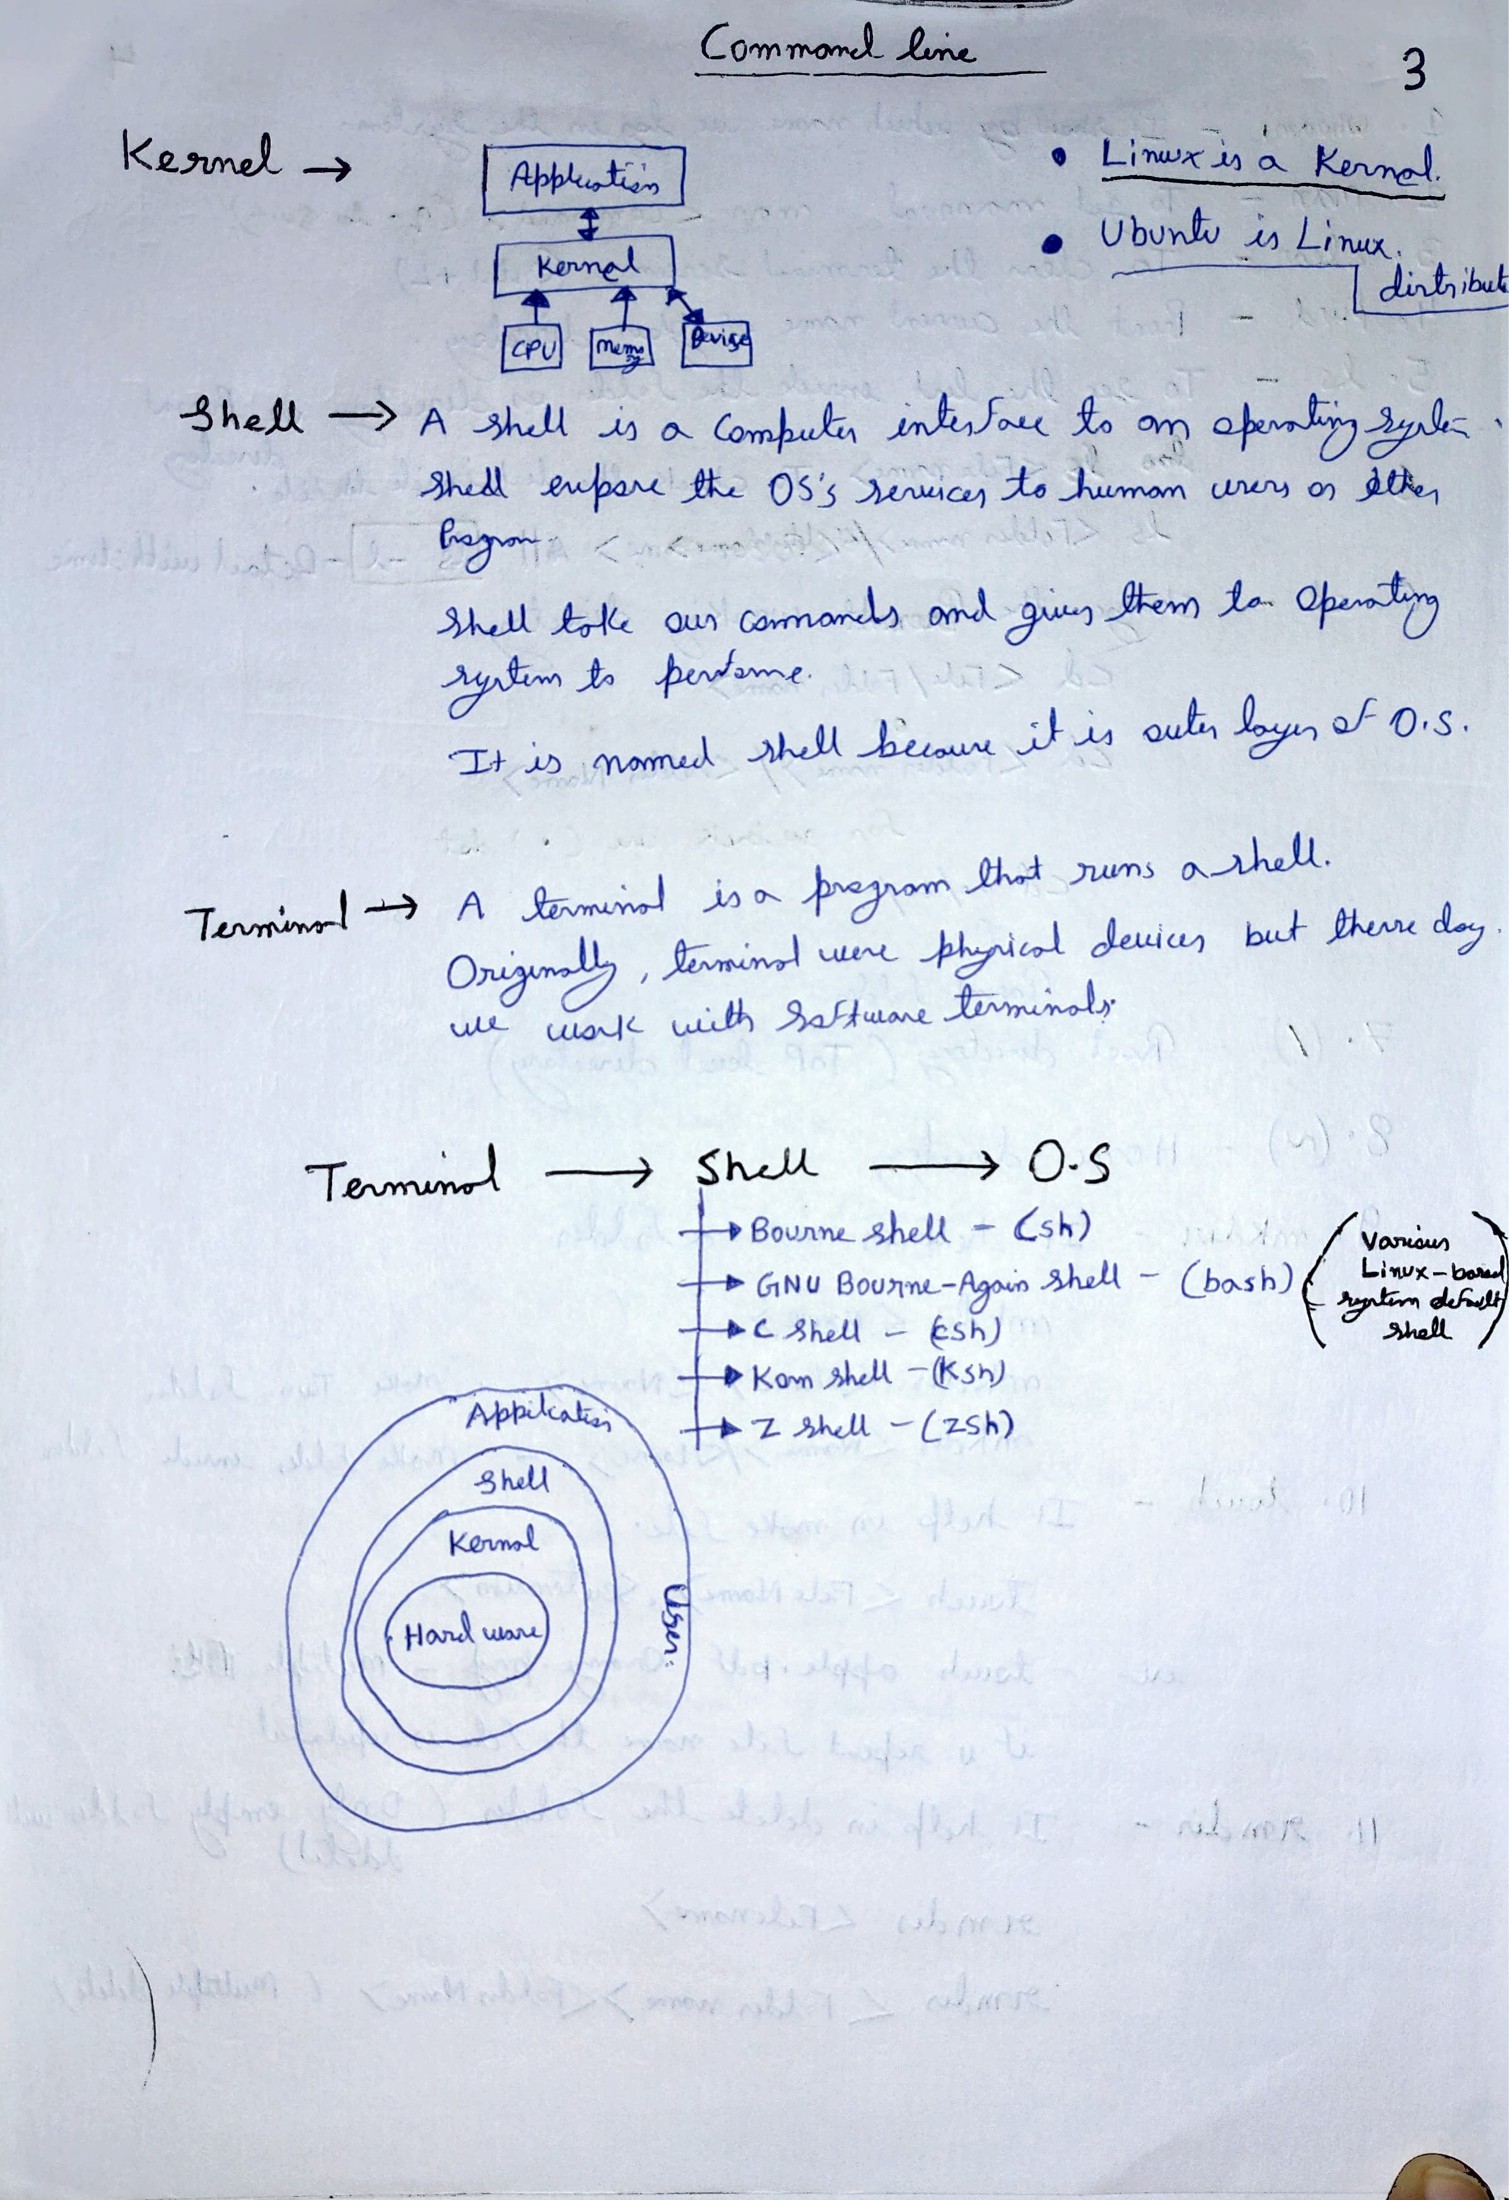 Command line
3
Kernel →
Application
Kernal
CPU
Memory
Devise
• Linux is a Kernal.
• Ubuntu is Linux.
distribut
Shell → A shell is a computer interface to an operating system.
shell expose the OS's services to human users or other
Program.
Shell take our commands and gives them to operating
system to performe.
It is named shell because it is outer layer of O.S.
Terminal → A terminal is a program that runs a shell.
Originally, terminal were physical devices but these day.
we work with software terminals.
Terminal → Shell → O.S
Bourne shell - (sh)
GNU Bourne-Again shell - (bash)
(Various
Linux-based
system default
shell)
C shell - (csh)
Korn shell - (Ksh)
Z shell - (zsh)
Application
Shell
Kernal
Hardware
User.